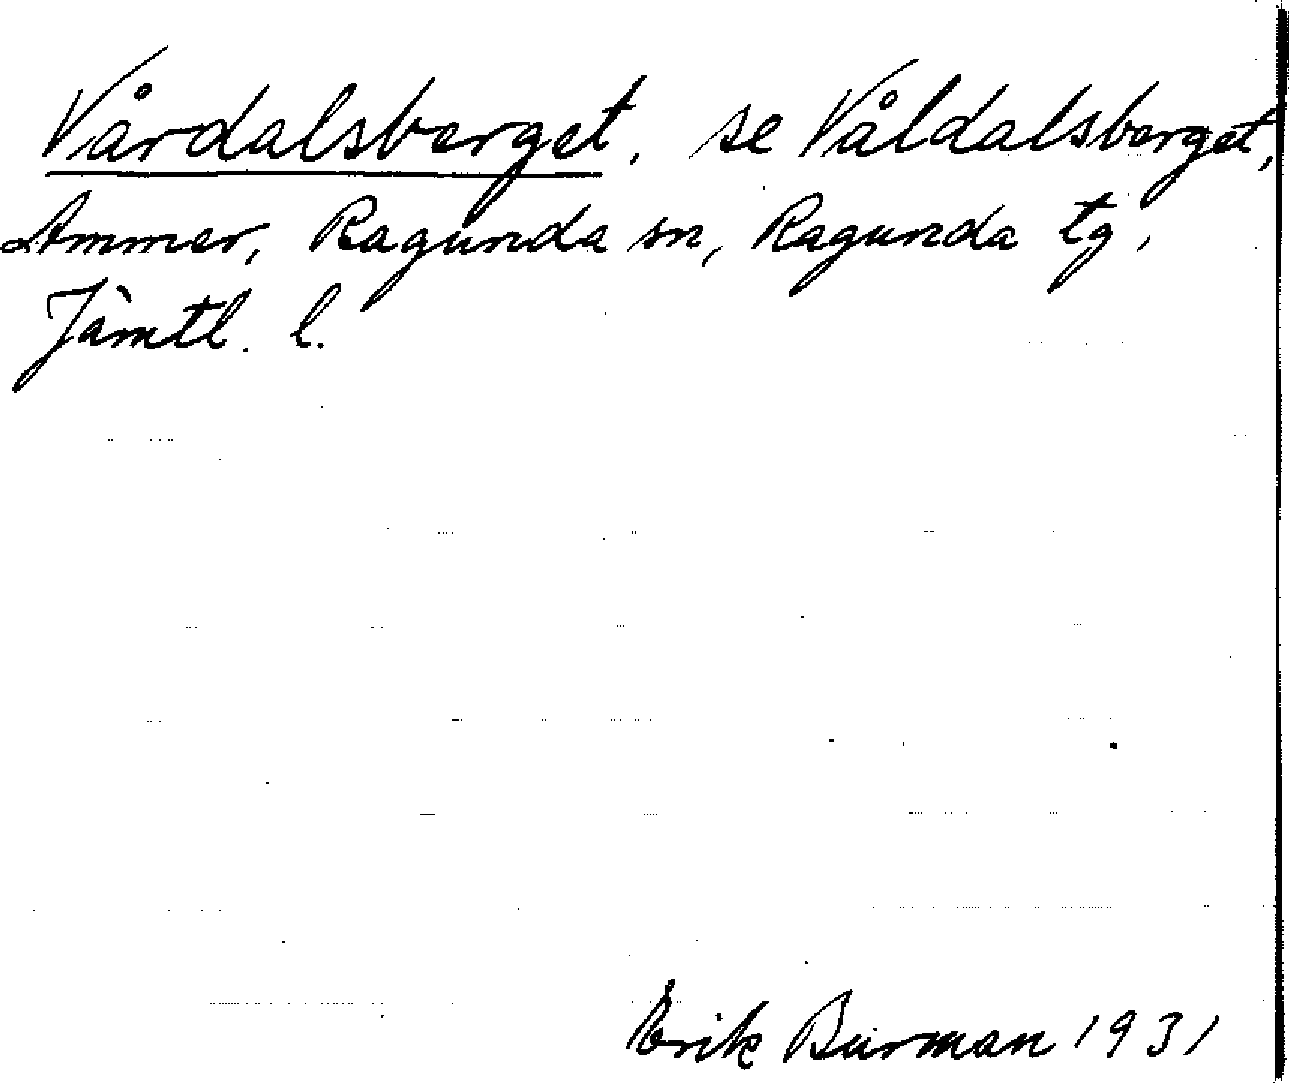 Vårdalsberget, se Våldalsberget,
Ammer, Ragunda sn, Ragunda tg,
Jämtl. l.
Erik Burman 1931